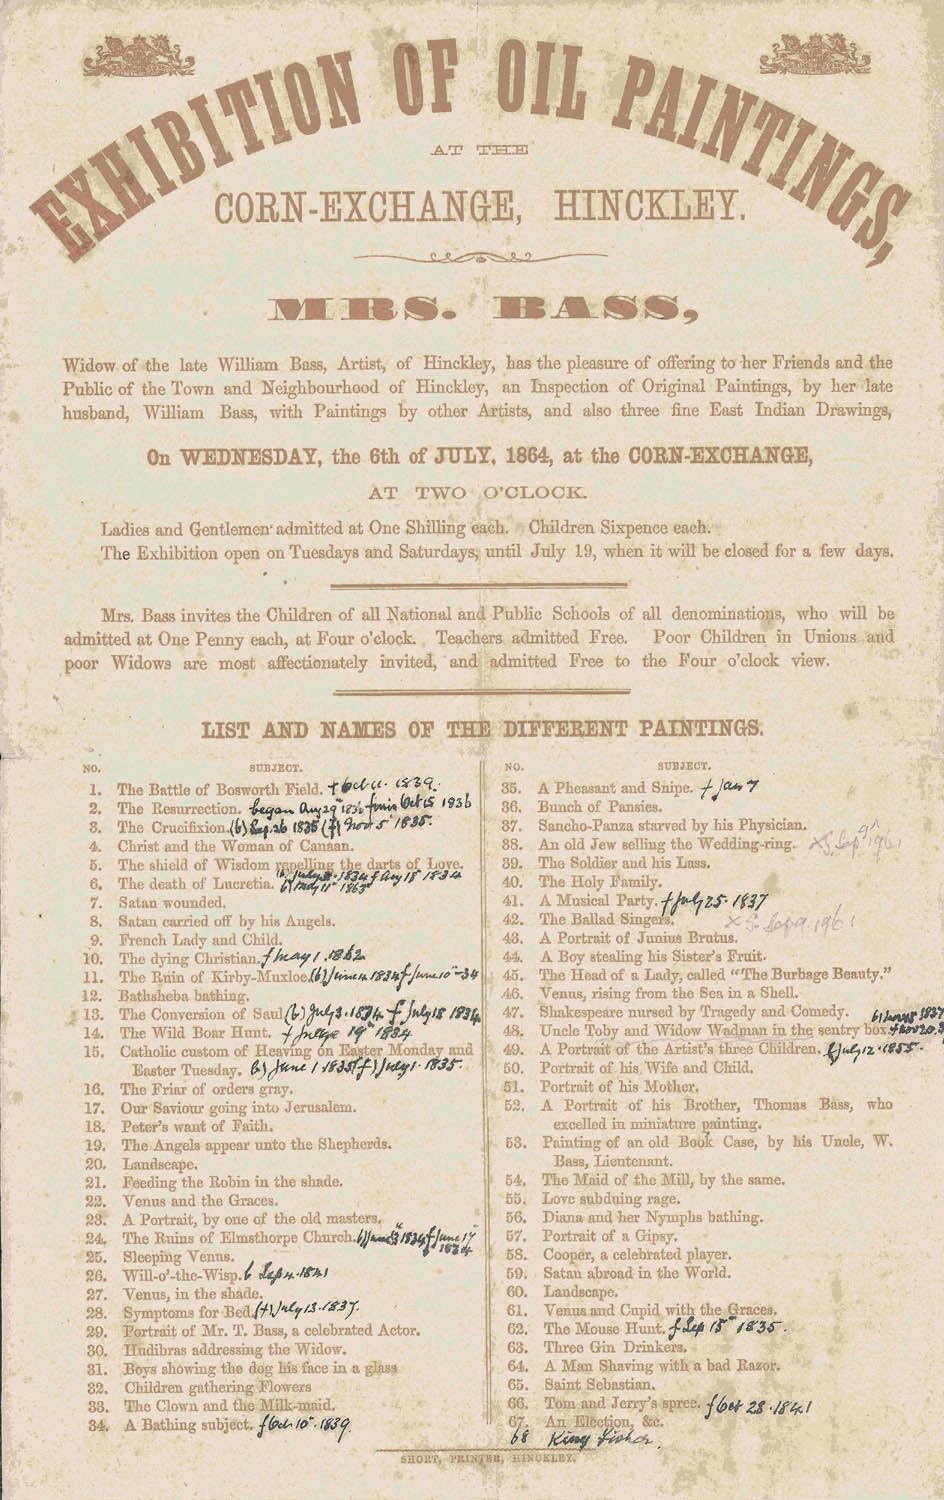 EXHIBITION OF OIL PAINTINGS,
AT THE
CORN-EXCHANGE, HINCKLEY.
MRS. BASS,
Widow of the late William Bass, Artist, of Hinckley, has the pleasure of offering to her Friends and the
Public of the Town and Neighbourhood of Hinckley, an Inspection of Original Paintings, by her late
husband, William Bass, with Paintings by other Artists, and also three fine East Indian Drawings,
On WEDNESDAY, the 6th of JULY, 1864, at the CORN-EXCHANGE,
AT TWO O'CLOCK.
Ladies and Gentlemen admitted at One Shilling each. Children Sixpence each.
The Exhibition open on Tuesdays and Saturdays, until July 19, when it will be closed for a few days.
Mrs. Bass invites the Children of all National and Public Schools of all denominations, who will be
admitted at One Penny each, at Four o'clock. Teachers admitted Free. Poor Children in Unions and
poor Widows are most affectionately invited, and admitted Free to the Four o'clock view.
LIST AND NAMES OF THE DIFFERENT PAINTINGS.
NO. SUBJECT.
1. The Battle of Bosworth Field. f Oct 11. 1839.
2. The Resurrection. began Aug 29th 1836 finis Oct 15 1836
3. The Crucifixion. (b) Sep. 26 1835 (f) Nov 5 1835.
4. Christ and the Woman of Canaan.
5. The shield of Wisdom repelling the darts of Love.
b July 1834 f Aug 18 1834
6. The death of Lucretia. b May 11 1863
7. Satan wounded.
8. Satan carried off by his Angels.
9. French Lady and Child.
10. The dying Christian. f May 1. 1862
11. The Ruin of Kirby-Muxloe. (b) June 4 1834 f June 10 -34
12. Bathsheba bathing.
13. The Conversion of Saul (b) July 3. 1834 f July 18 1834
14. The Wild Boar Hunt. f 19th 1834
15. Catholic custom of Heaving on Easter Monday and
Easter Tuesday. b) June 1 1835 (f) July 1. 1835.
16. The Friar of orders gray.
17. Our Saviour going into Jerusalem.
18. Peter's want of Faith.
19. The Angels appear unto the Shepherds.
20. Landscape.
21. Feeding the Robin in the shade.
22. Venus and the Graces.
23. A Portrait, by one of the old masters.
24. The Ruins of Elmsthorpe Church. b) June 1834 f June 17
1834
25. Sleeping Venus.
26. Will-o'-the-Wisp. b Sep 4. 1841
27. Venus, in the shade.
28. Symptoms for Bed. (f) July 13. 1837.
29. Portrait of Mr. T. Bass, a celebrated Actor.
30. Hudibras addressing the Widow.
31. Boys showing the dog his face in a glass
32. Children gathering Flowers
33. The Clown and the Milk-maid.
34. A Bathing subject. f Oct. 10. 1839.
NO. SUBJECT.
35. A Pheasant and Snipe. f Jan 7
36. Bunch of Pansies.
37. Sancho-Panza starved by his Physician.
38. An old Jew selling the Wedding-ring. x S. Sep 9th 1961
39. The Soldier and his Lass.
40. The Holy Family.
41. A Musical Party. f July 25. 1837
42. The Ballad Singers. x S. Sep 9. 1961
43. A Portrait of Junius Brutus.
44. A Boy stealing his Sister's Fruit.
45. The Head of a Lady, called "The Burbage Beauty."
46. Venus, rising from the Sea in a Shell.
47. Shakespeare nursed by Tragedy and Comedy. 1837
48. Uncle Toby and Widow Wadman in the sentry box. f Nov 20.
49. A Portrait of the Artist's three Children. f July 12. 1855.
50. Portrait of his Wife and Child.
51. Portrait of his Mother.
52. A Portrait of his Brother, Thomas Bass, who
excelled in miniature painting.
53. Painting of an old Book Case, by his Uncle, W.
Bass, Lieutenant.
54. The Maid of the Mill, by the same.
55. Love subduing rage.
56. Diana and her Nymphs bathing.
57. Portrait of a Gipsy.
58. Cooper, a celebrated player.
59. Satan abroad in the World.
60. Landscape.
61. Venus and Cupid with the Graces.
62. The Mouse Hunt. f Sep 15th 1835.
63. Three Gin Drinkers.
64. A Man Shaving with a bad Razor.
65. Saint Sebastian.
66. Tom and Jerry's spree. f Oct 28. 1841
67. An Election, &c.
68 King Fisher.
SHORT, PRINTER, HINCKLEY.